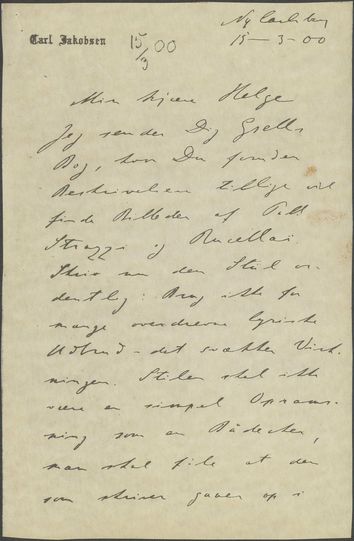 Ny Carlsberg
Carl Jakobsen 15/3 00 15-3-00
Min kjære Helge
Jeg sender Dig Gsells
Bog, hvor Du foruden
Beskrivelsen tillige vil
finde Billeder af Pall
Strozzi og Rucellai.
Skriv nu den Stiil or-
dentlig: Brug ikke for
mange overdrevne lyriske
Udbrud - det svækker Virk-
ningen. Stilen skal ikke
være en simpel Oprams-
ning som en Bädecker,
man skal føle at den
som skriver gaaer op i